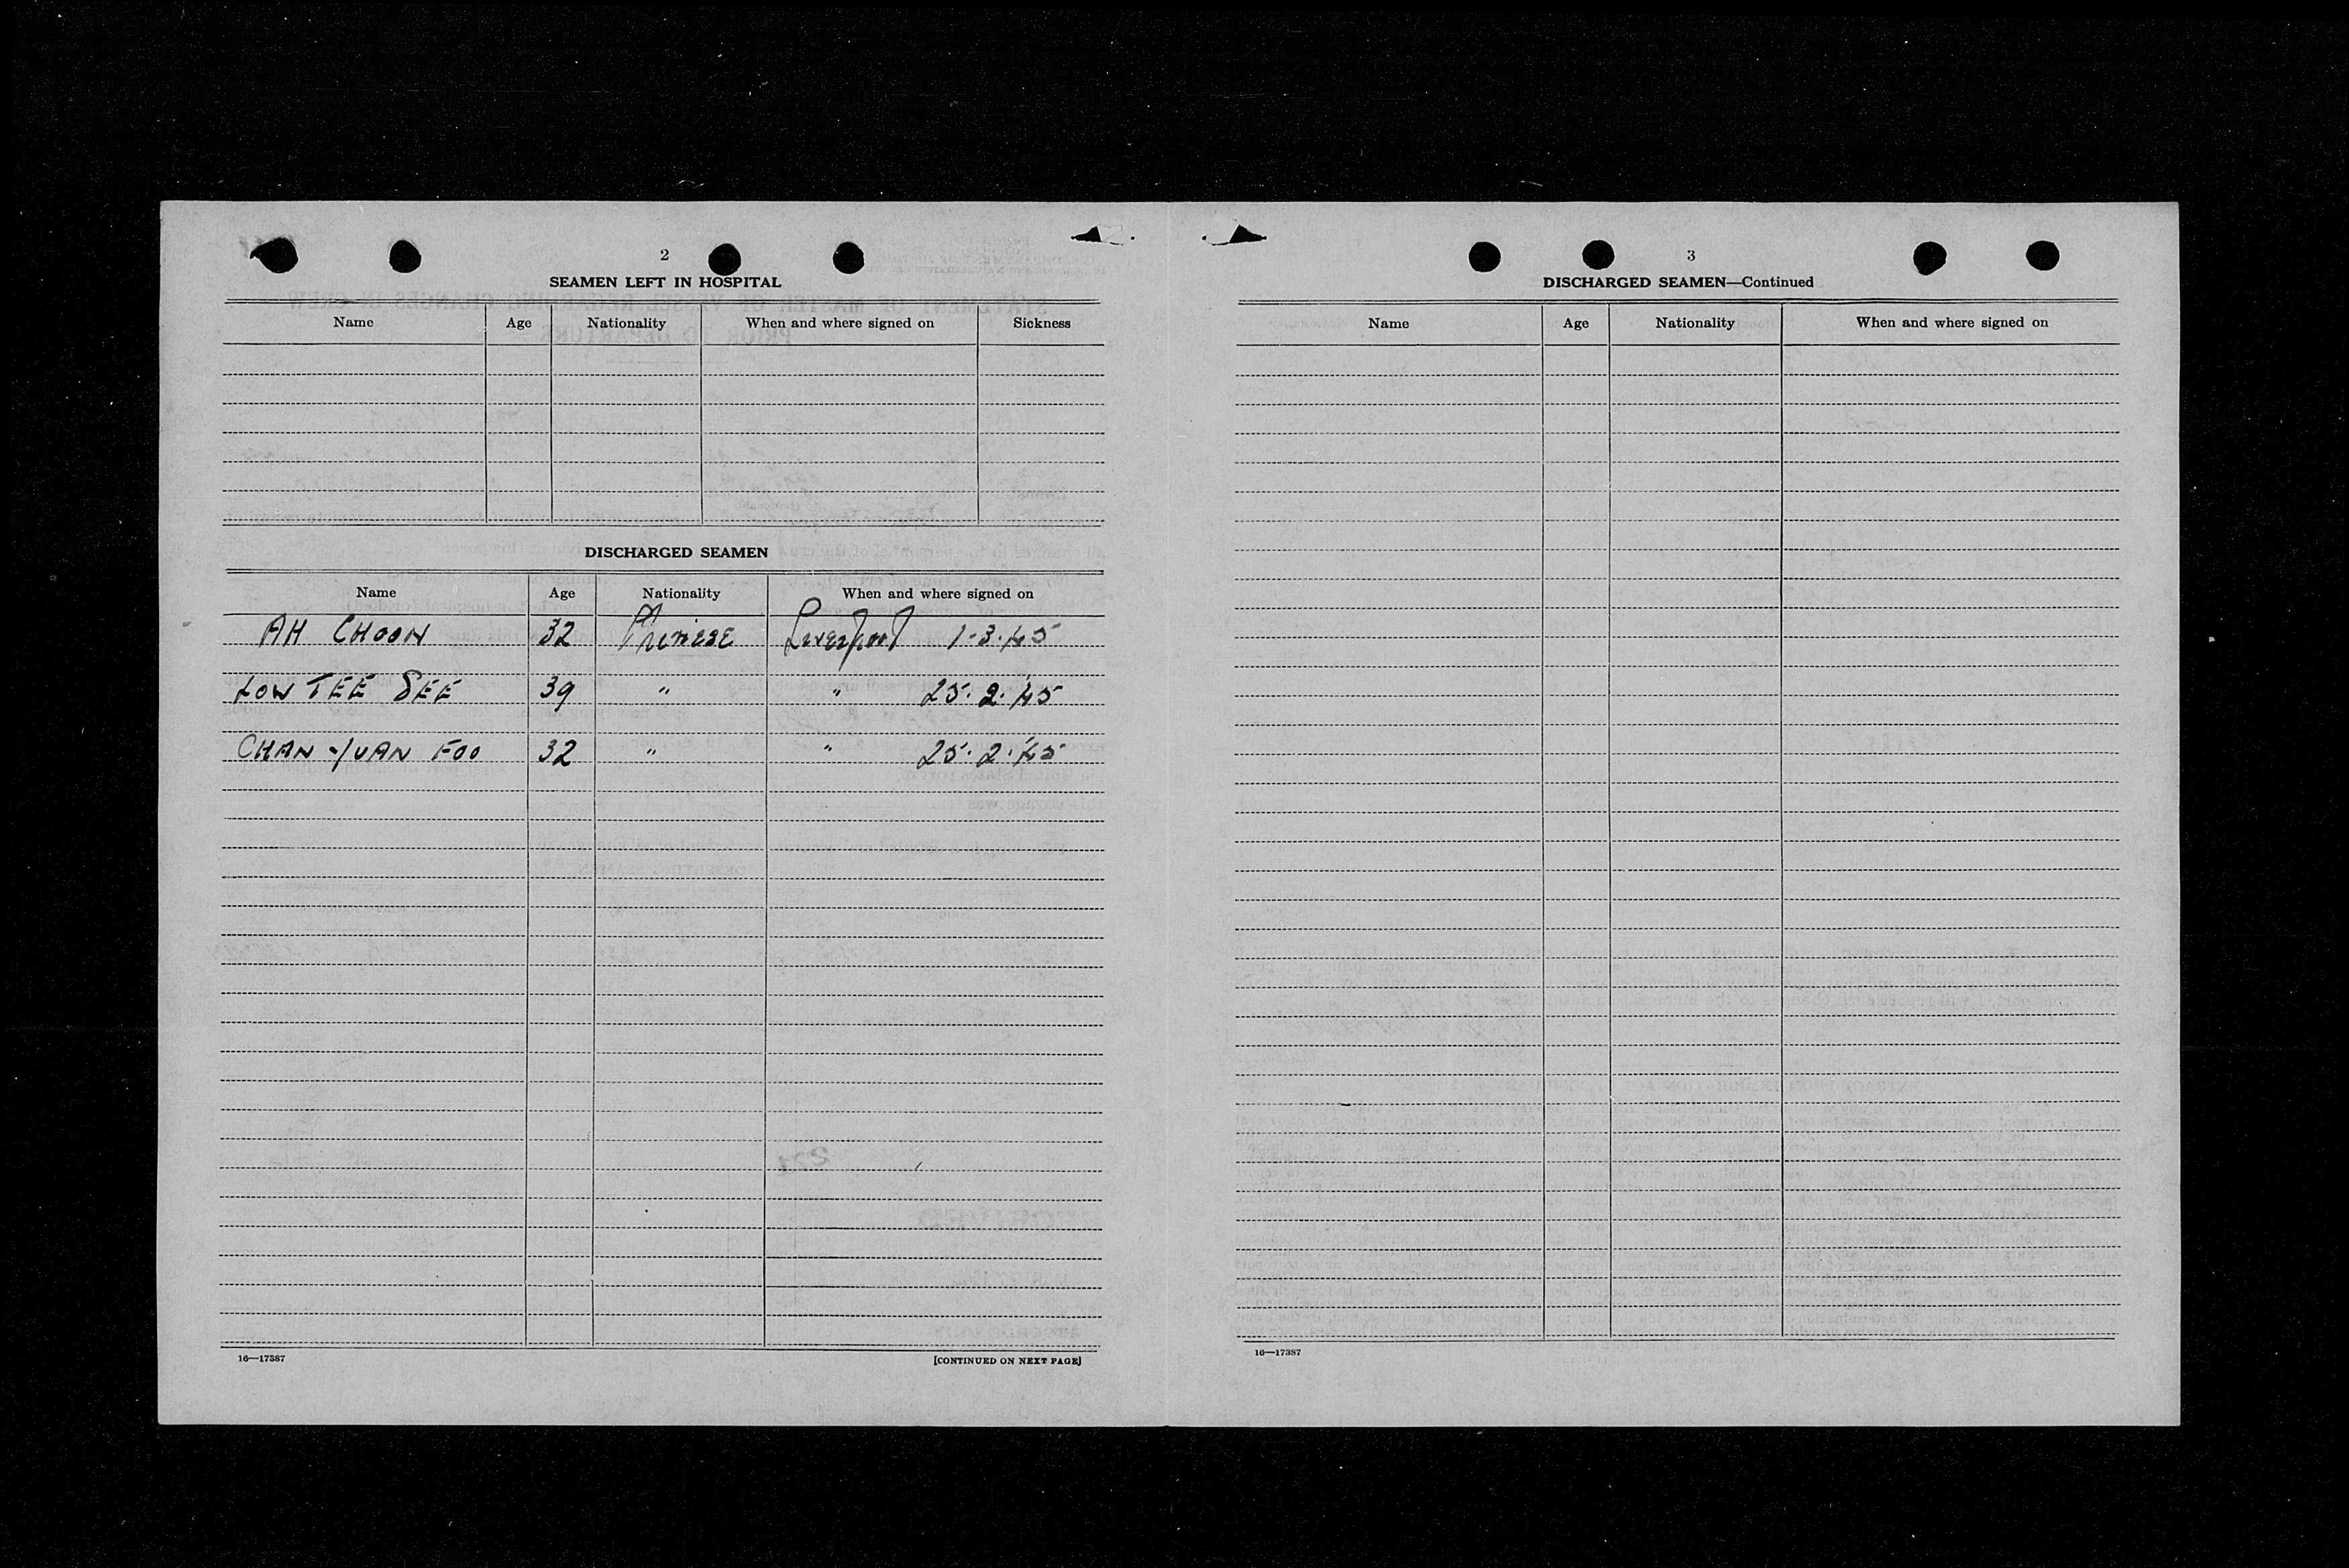 2
SEAMEN LEFT IN HOSPITAL
Name Age Nationality When and where signed on Sickness
DISCHARGED SEAMEN
Name Age Nationality When and where signed on
AH CHOON 32 Chinese Liverpool 1-3-45
LOW TEE SEE 39 " " 25.2.45
CHAN YUAN FOO 32 " " 25.2.45
16—17387
[CONTINUED ON NEXT PAGE]
3
DISCHARGED SEAMEN—Continued
Name Age Nationality When and where signed on
16—17387